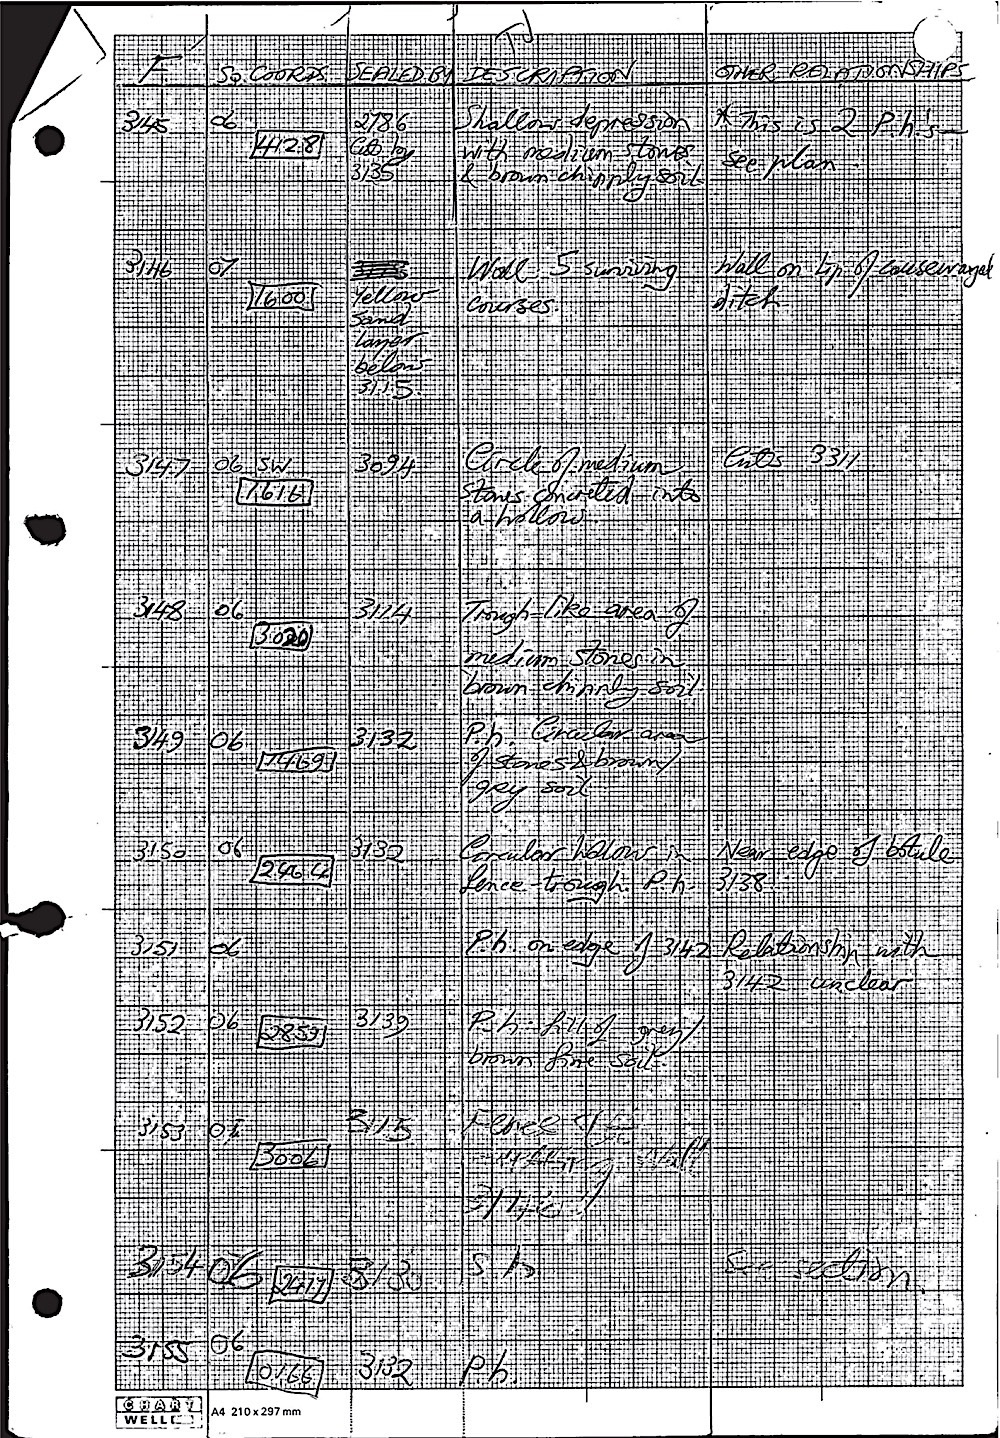 F SQ. COORDS. SEALED BY DESCRIPTION OTHER RELATIONSHIPS
3145 06 2786 Shallow depression * This is 2 P.h's –
4128 Cut by with medium stones see plan.
3135 & brown chipply soil.
3146 07 Wall – 5 surviving Wall on top of causewayed
1600 Yellow courses. ditch.
sand
layer
below
3115.
3147 06 SW 3094 Circle of medium Cuts 3311
1616 stones concreted into
a hollow.
3148 06 3114 Trough-like area of
3020
medium stones in
brown chipply soil.
3149 06 3132 P.h. Circular area
7469 of stones & brown/
grey soil
3150 06 3132 Circular hollow in Near edge of
fence-trough. P.h. 3138.
3151 06 P.h. on edge of 3142 Relationship with
3142 unclear
3152 06 3139 P.h. fill of grey/
2859 brown fine soil.
3153 3115 Fence
3006 wall

3154 06 3130 S.h See section.
3155 06
0166 3132 P.h.
CHART
WELL A4 210 x 297 mm